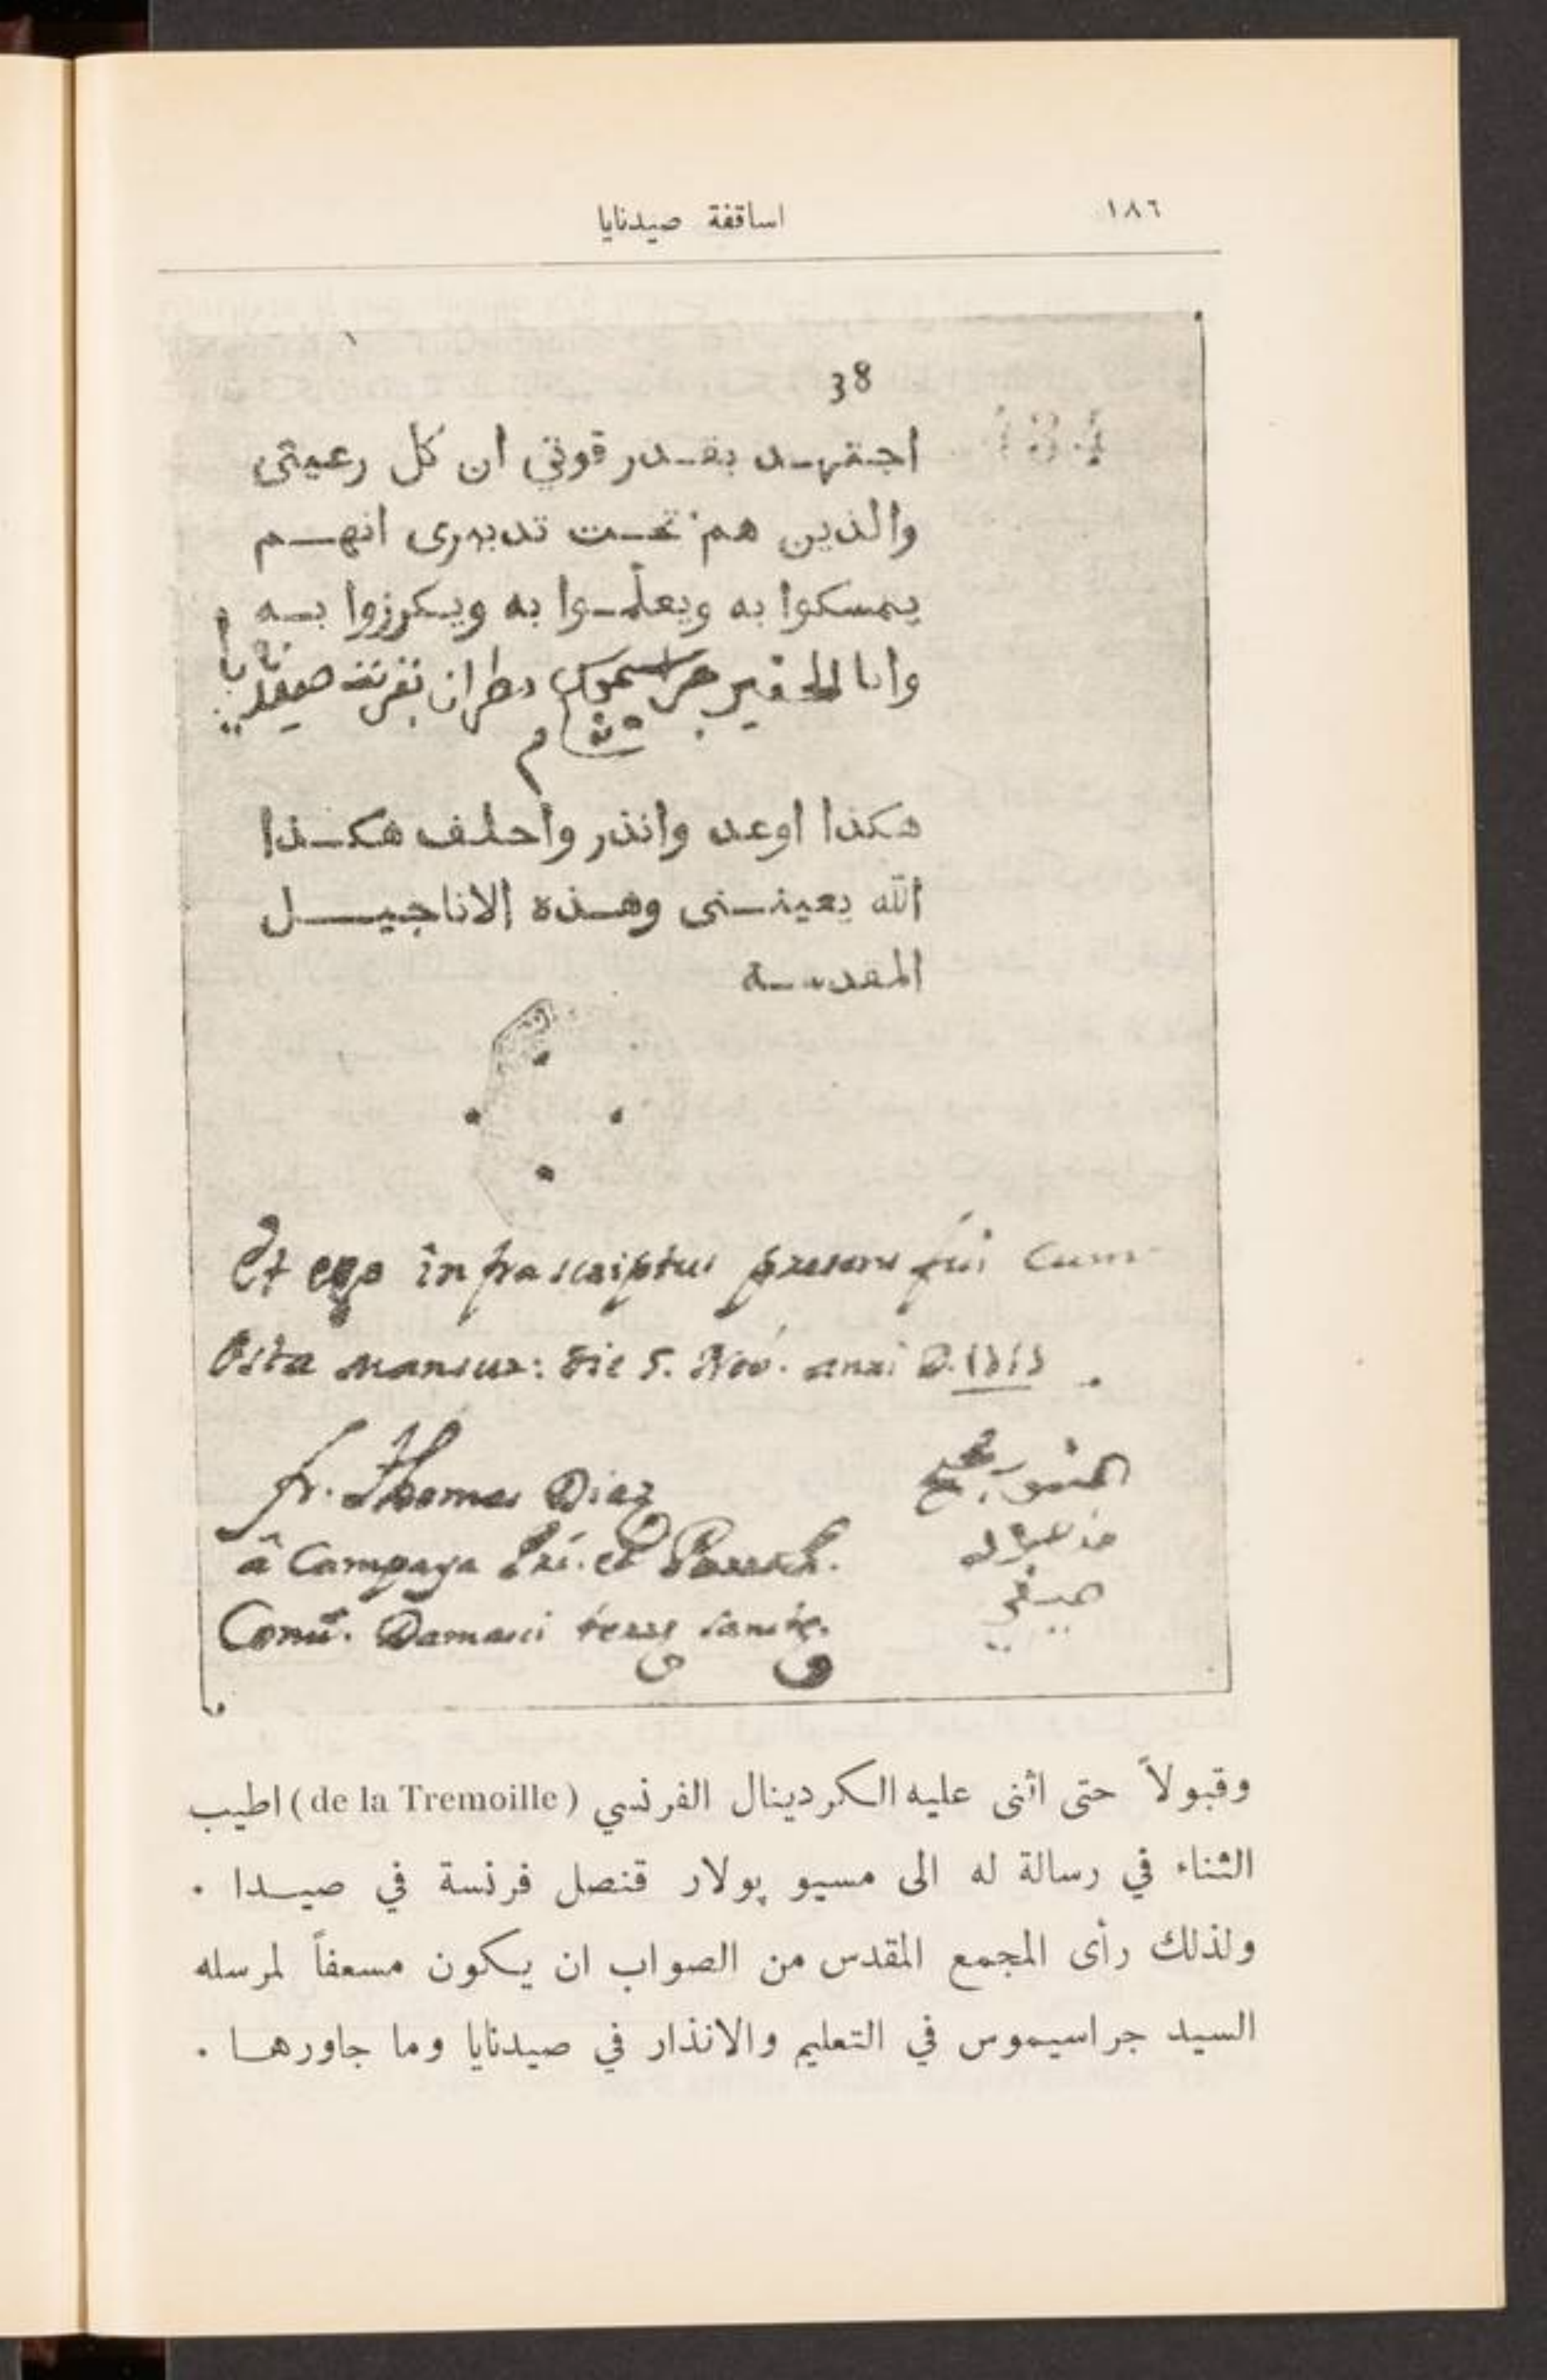 ١٨٦
اساقفة صيدنايا
38
اجتهد بقدر قوتي ان كل رعيتى
والذين هم تحت تدبيرى انهم
يمسكوا به ويعلموا به ويكرزوا به
وانا الحقير جراسيموس مطران
هكذا اوعد وانذر واحلف هكذا
الله يعينني وهذه الاناجيل
المقدسه
Et ego infrascriptus presens fui cum
Osta mansur: die 5. Nov. anni D.
fr. Thomas Diaz
à Campaya
Damasci terre sancte.
وقبولاً حتى اثنى عليه الكردينال الفرنسي (de la Tremoille) اطيب
الثناء في رسالة له الى مسيو پولار قنصل فرنسة في صيدا .
ولذلك رأى المجمع المقدس من الصواب ان يكون مسعفاً لمرسله
السيد جراسيموس في التعليم والانذار في صيدنايا وما جاورها .